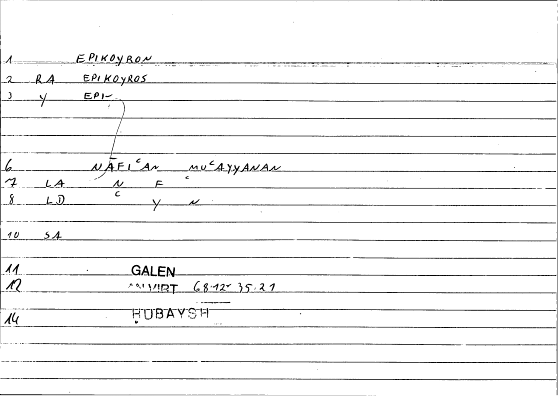 1 EPIKOYRON
2 RA EPIKOYROS
3 Y EPI-
6 NĀFIᶜAN MUᶜAYYANAN
7 LA N F ᶜ
8 LD ᶜ Y N
10 SA
11 GALEN
12 68.12 35.21
14 ḤUBAYSH